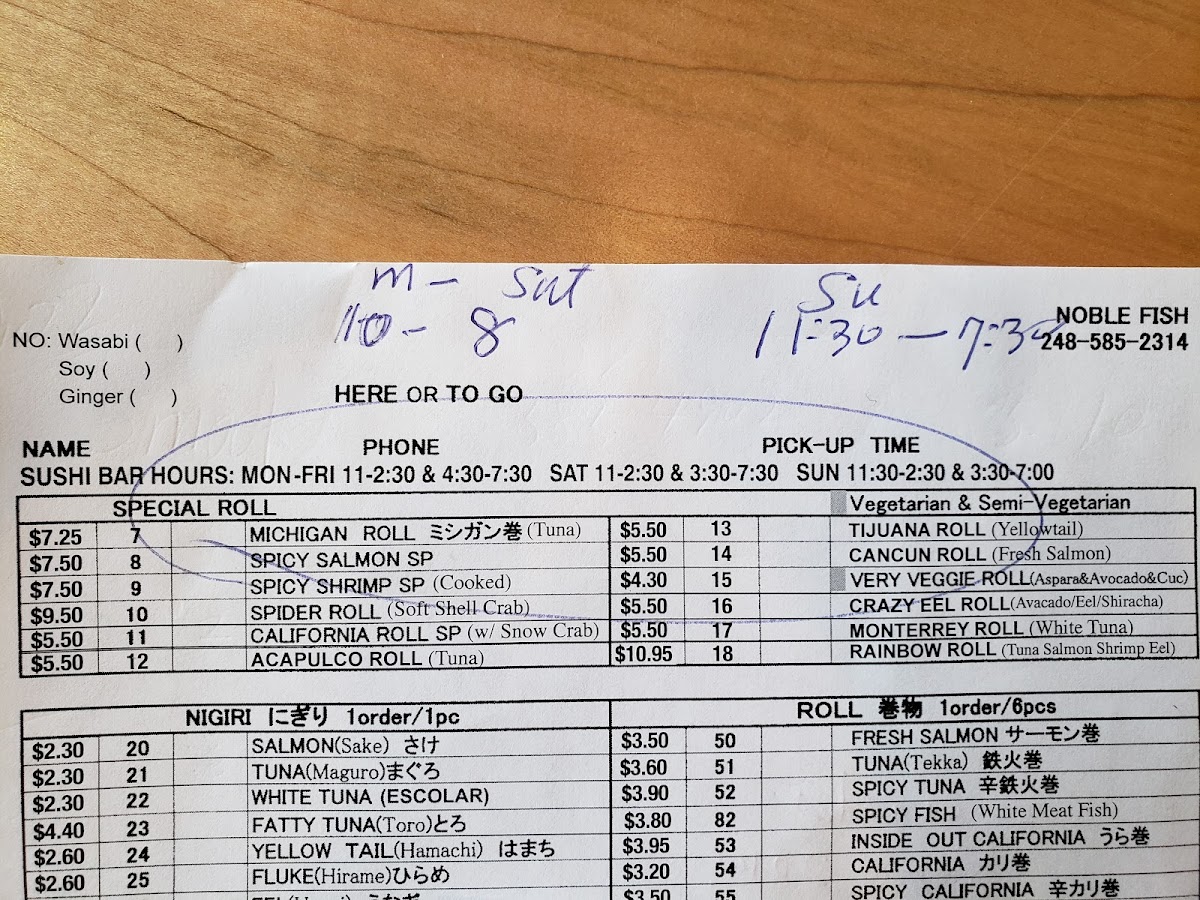 m - Sat
10 - 8
Su
11:30 - 7:30
NOBLE FISH
248-585-2314
NO: Wasabi (     )
Soy (     )
Ginger (     )
HERE OR TO GO
NAME PHONE PICK-UP TIME
SUSHI BAR HOURS: MON-FRI 11-2:30 & 4:30-7:30 SAT 11-2:30 & 3:30-7:30 SUN 11:30-2:30 & 3:30-7:00
SPECIAL ROLL Vegetarian & Semi-Vegetarian
$7.25 7 MICHIGAN ROLL ミシガン巻 (Tuna) $5.50 13 TIJUANA ROLL (Yellowtail)
$7.50 8 SPICY SALMON SP $5.50 14 CANCUN ROLL (Fresh Salmon)
$7.50 9 SPICY SHRIMP SP (Cooked) $4.30 15 VERY VEGGIE ROLL(Aspara&Avocado&Cuc)
$9.50 10 SPIDER ROLL (Soft Shell Crab) $5.50 16 CRAZY EEL ROLL(Avacado/Eel/Shiracha)
$5.50 11 CALIFORNIA ROLL SP (w/ Snow Crab) $5.50 17 MONTERREY ROLL (White Tuna)
$5.50 12 ACAPULCO ROLL (Tuna) $10.95 18 RAINBOW ROLL (Tuna Salmon Shrimp Eel)
NIGIRI にぎり 1order/1pc ROLL 巻物 1order/6pcs
$2.30 20 SALMON(Sake) さけ $3.50 50 FRESH SALMON サーモン巻
$2.30 21 TUNA(Maguro)まぐろ $3.60 51 TUNA(Tekka) 鉄火巻
$2.30 22 WHITE TUNA (ESCOLAR) $3.90 52 SPICY TUNA 辛鉄火巻
$4.40 23 FATTY TUNA(Toro)とろ $3.80 82 SPICY FISH (White Meat Fish)
$2.60 24 YELLOW TAIL(Hamachi) はまち $3.95 53 INSIDE OUT CALIFORNIA うら巻
$2.60 25 FLUKE(Hirame)ひらめ $3.20 54 CALIFORNIA カリ巻
$3.50 55 SPICY CALIFORNIA 辛カリ巻